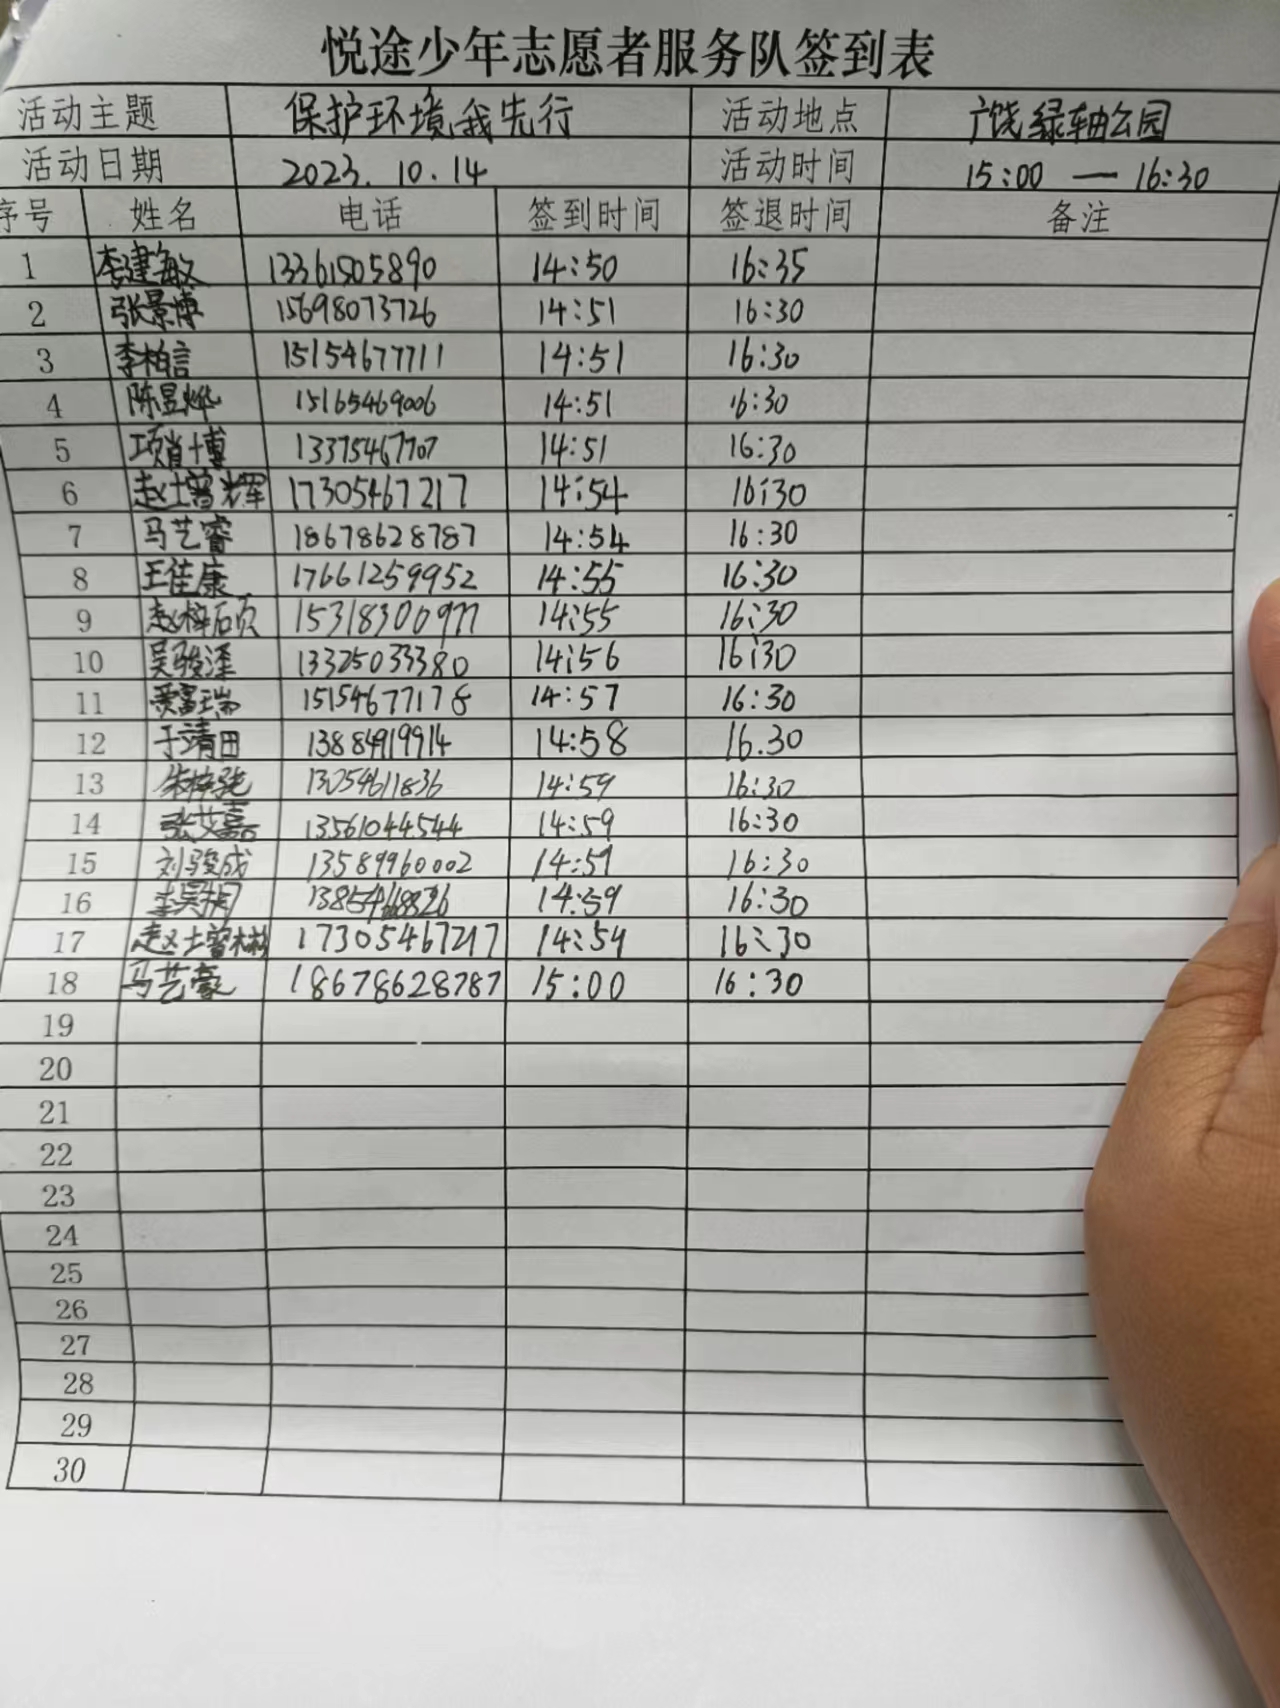 悦途少年志愿者服务队签到表
活动主题 保护环境,我先行 活动地点 广饶绿轴公园
活动日期 2023.10.14 活动时间 15:00 — 16:30
序号 姓名 电话 签到时间 签退时间 备注
1 李建敏 13361505890 14:50 16:35
2 张景博 15698073726 14:51 16:30
3 李柏言 15154677711 14:51 16:30
4 陈昱烨 15165469006 14:51 16:30
5 项肖博 13375467707 14:51 16:30
6 赵增辉 17305467217 14:54 16:30
7 马艺睿 18678628787 14:54 16:30
8 王佳康 17661259952 14:55 16:30
9 赵梓硕 15318300977 14:55 16:30
10 吴骏泽 13325033380 14:56 16:30
11 贾富瑞 15154677178 14:57 16:30
12 于靖田 13884919914 14:58 16.30
13 13254611836 14:59 16:30
14 张艾嘉 13561044544 14:59 16:30
15 刘骏成 13589960002 14:59 16:30
16 14:59 16:30
17 赵增彬 17305467217 14:59 16:30
18 马艺豪 18678628787 15:00 16:30
19
20
21
22
23
24
25
26
27
28
29
30